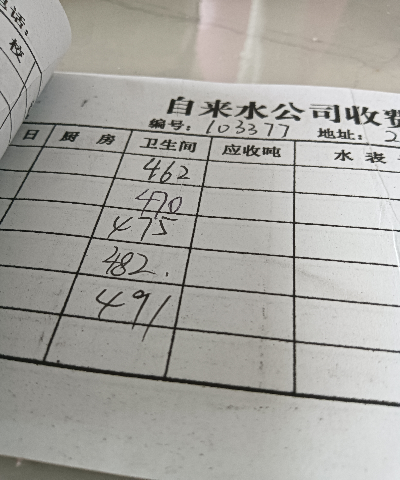 电话:
校
自来水公司收费
编号: 103377 地址: 2
日 厨房 卫生间 应收吨 水表
462
470
475
482.
491